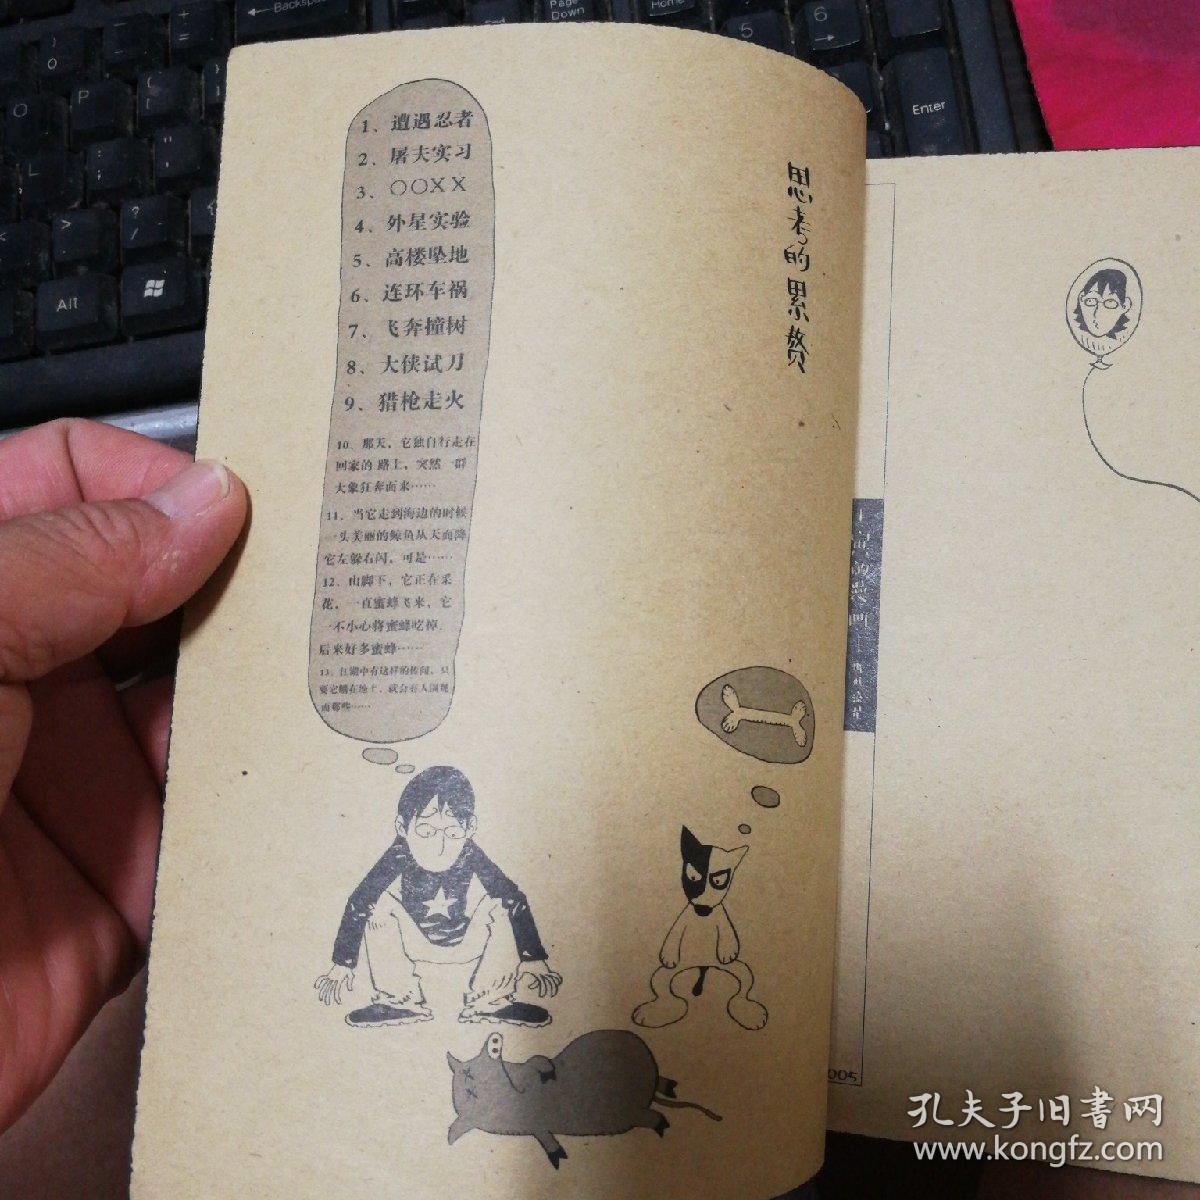 思考的累赘
1、遭遇忍者
2、屠夫实习
3、〇〇XX
4、外星实验
5、高楼坠地
6、连环车祸
7、飞奔撞树
8、大侠试刀
9、猎枪走火
10、那天，它独自行走在
回家的 路上，突然一群
大象狂奔而来……
11、当它走到海边的时候
一头美丽的鲸鱼从天而降
它左躲右闪，可是……
12、山脚下，它正在采
花，一直蜜蜂飞来，它
一不小心将蜜蜂吃掉，
后来好多蜜蜂……
13、江湖中有这样的传闻，只
要它躺在地上，就会有人围观
005
Backspace
Page
Down
Home
5
6
Enter
Alt
O
P
孔夫子旧書网
www.kongfz.com